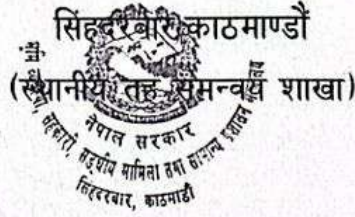 सिंहदरबार काठमाण्डौं
(स्थानीय तह समन्वय शाखा)
नेपाल सरकार
सङ्घीय मामिला तथा सामान्य प्रशासन मन्त्रालय
सिंहदरबार, काठमाडौं